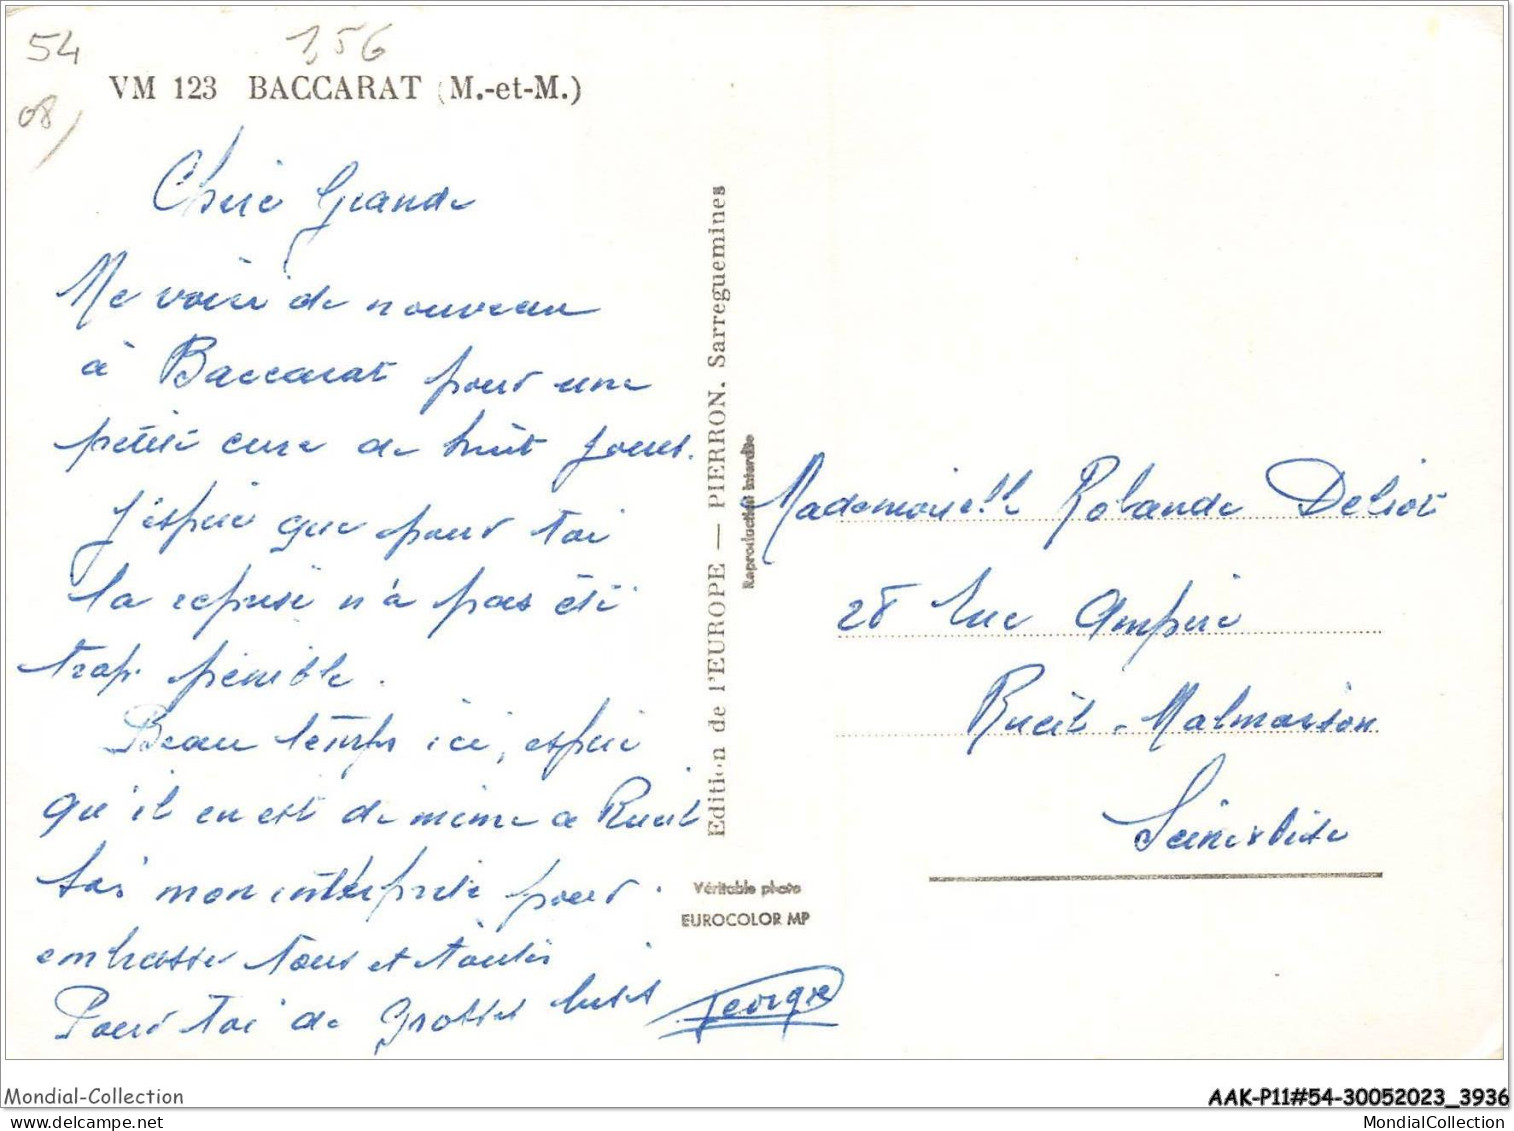 54
1,56
08
VM 123 BACCARAT (M.-et-M.)
Chère Grande
Me voici de nouveau
à Baccarat pour une
petite cure de huit jours.
J'espère que pour toi
la reprise n'a pas été
trop pénible.
Beau temps ici, espère
qu'il en est de même à Rueil
Sois mon interprète pour
embrasser tous et toutes
Pour toi de grosses bises
Georges
Edition de l'EUROPE — PIERRON. Sarreguemines
Reproduction interdite
Véritable photo
EUROCOLOR MP
Mademoiselle Rolande
28 rue Ampère
Rueil-Malmaison
Seine & Oise
Mondial-Collection
AAK-P11#54-30052023_3936
MondialCollection